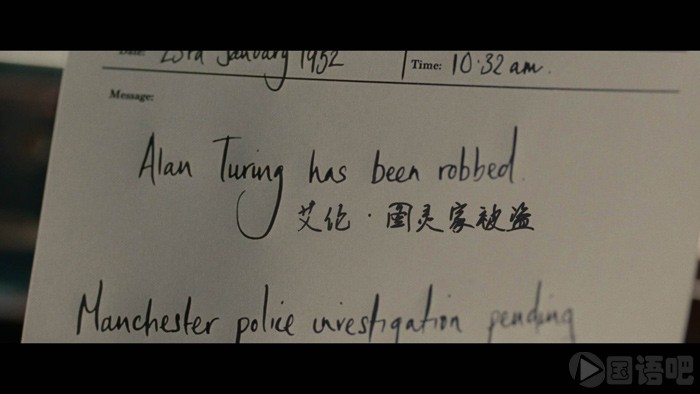 Date: 23rd January 1952
Time: 10:32 am.
Message:
Alan Turing has been robbed.
艾伦·图灵家被盗
Manchester police investigation pending
国语吧